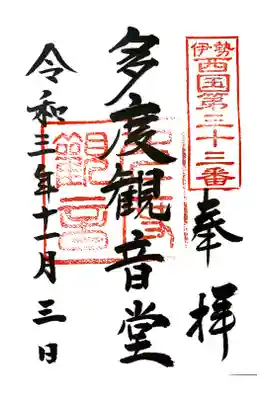 伊勢
西国第三十三番
奉拝
多度観音堂
令和三年十一月三日